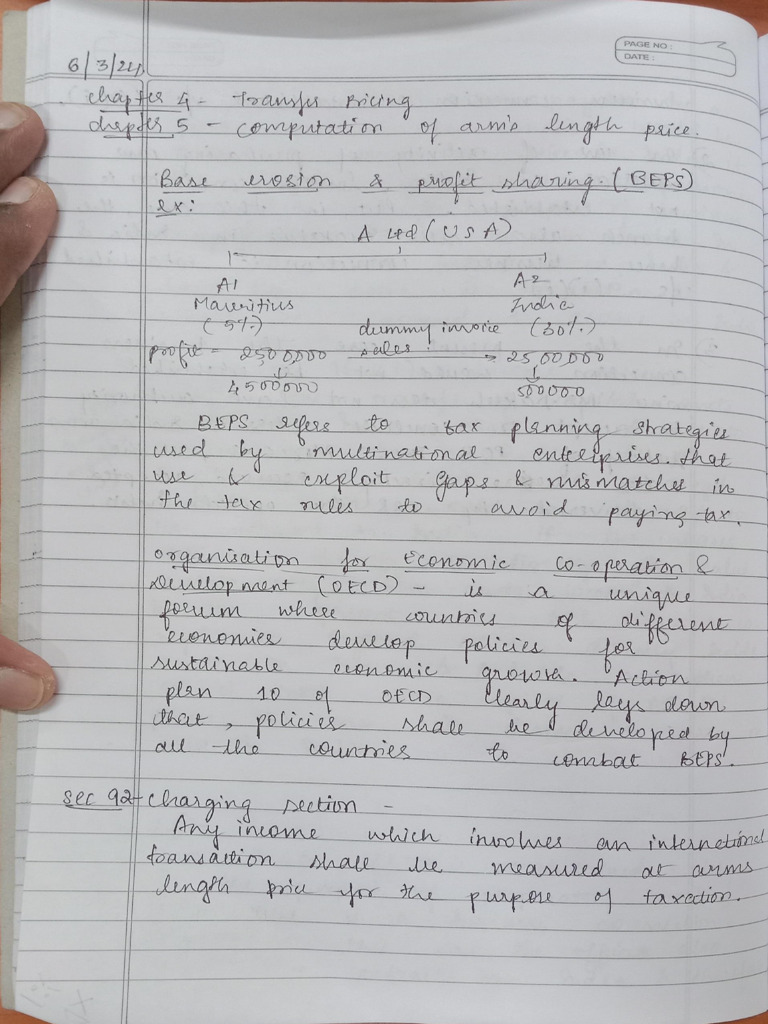 PAGE NO :
DATE :
6/3/24
Chapter 4 - Transfer Pricing
chapter 5 - computation of arm's length price.
Base erosion & profit sharing. (BEPS)
ex:
A Ltd (USA)
A1 A2
Mauritius India
(5%) dummy invoice (30%)
profit - 2500000 sales = 2500000
↓ ↓
4500000 500000
BEPS refers to tax planning strategies
used by multinational enterprises. that
use & exploit gaps & mismatches in
the tax rules to avoid paying tax.
organisation for Economic co-operation &
Development (OECD) - is a unique
forum where countries of different
economies develop policies for
sustainable economic growth. Action
plan 10 of OECD clearly lays down
that, policies shall be developed by
all the countries to combat BEPS.
Sec 92 - Charging section -
Any income which involves an international
transaction shall be measured at arms
length price for the purpose of taxation.